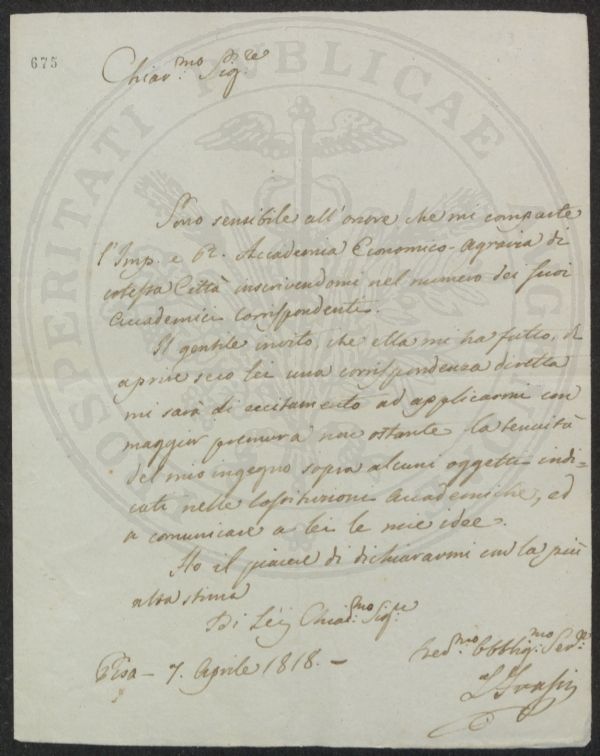 675
Chiar.mo Sig.re
Sono sensibile all'onore che mi comparte
l'Imp. e R. Accademia Economico-Agraria di
cotessa Città inscrivendomi nel numero dei suoi
Accademici Corrispondenti.
Il gentile invito, che ella mi ha fatto, di
aprire seco lei una corrispondenza diretta
mi sarà di eccitamento ad applicarmi con
maggior premura non ostante la tenuità
del mio ingegno sopra alcuni oggetti indi=
cati nelle Costituzioni Accademiche, ed
a comunicare a lei le mie idee.
Ho il piacere di dichiararmi con la più
alta stima
Di Lei Chiar.mo Sig.re
Pisa - 7. Aprile 1818. -
Dev.mo Obblig.mo Ser.re
PROSPERITATI PUBLICAE AUGENDAE